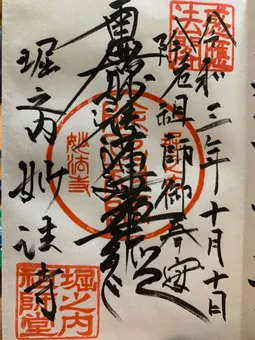 令和三年十月十日
除厄祖師御奉安
南無妙法蓮華経
堀之内妙法寺
妙法寺
堀之内
祖師堂